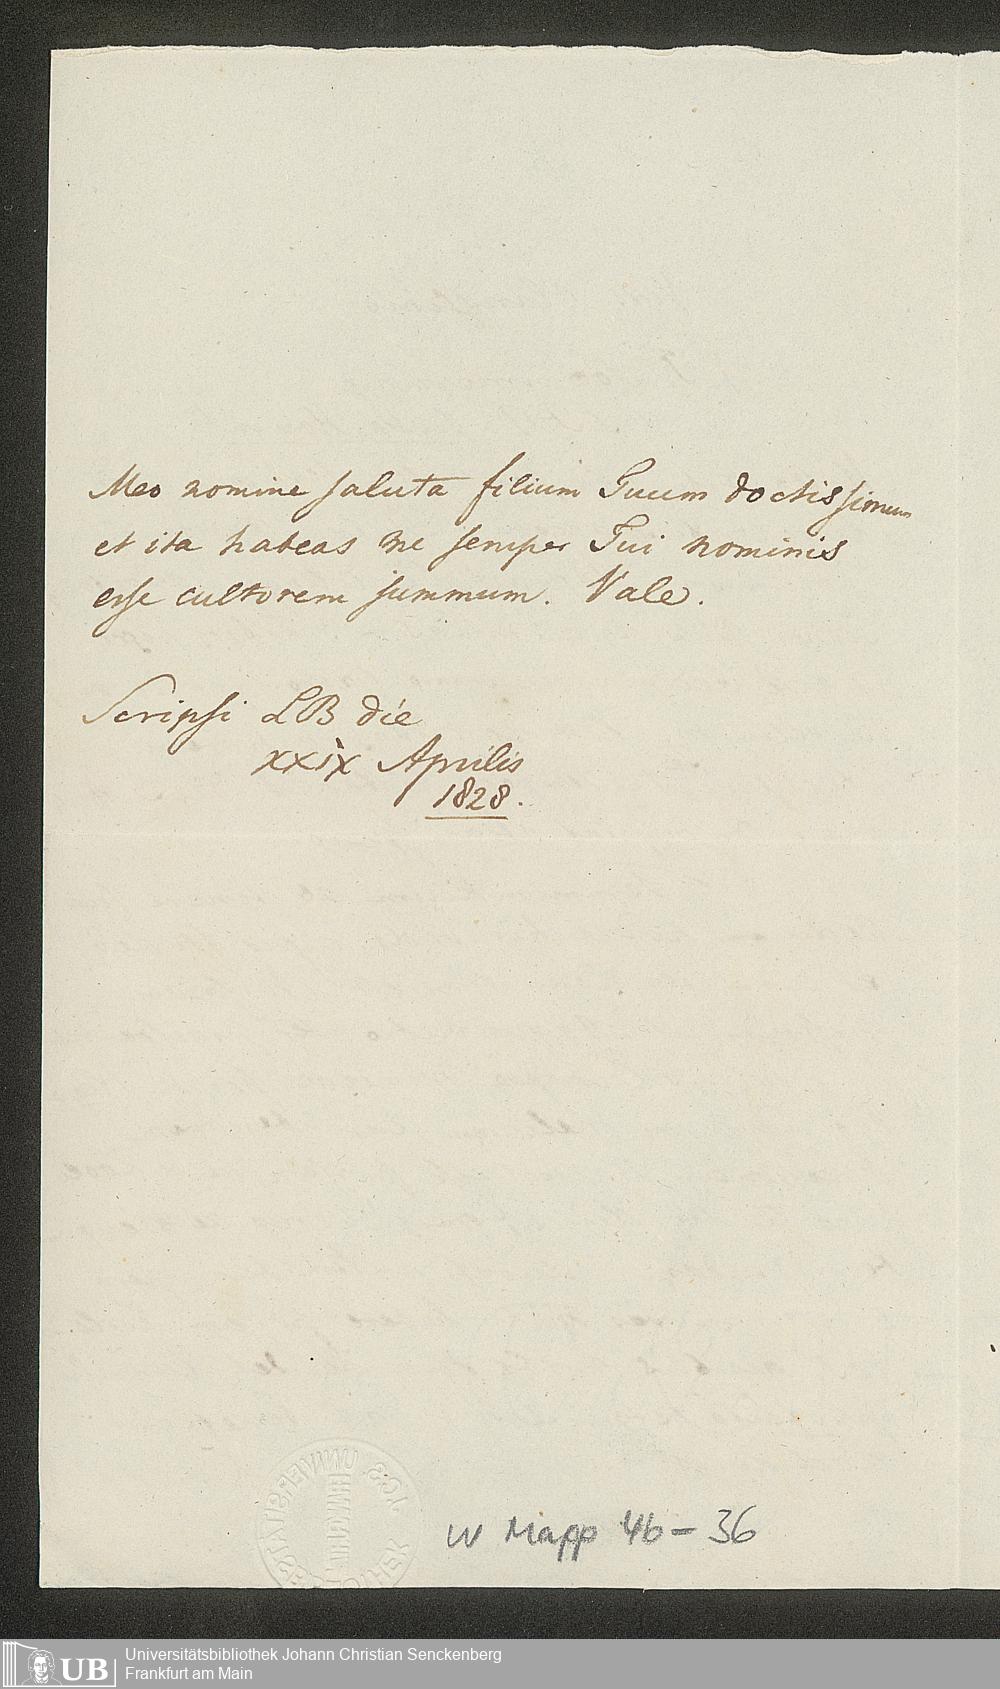 Meo nomine saluta filium Tuum doctissimum
et ita habeas me semper Tui nominis
esse cultorem summum. Vale.
Scripsi LB die
XXIX Aprilis
1828.
W Mapp 46-36
UB
Universitätsbibliothek Johann Christian Senckenberg
Frankfurt am Main